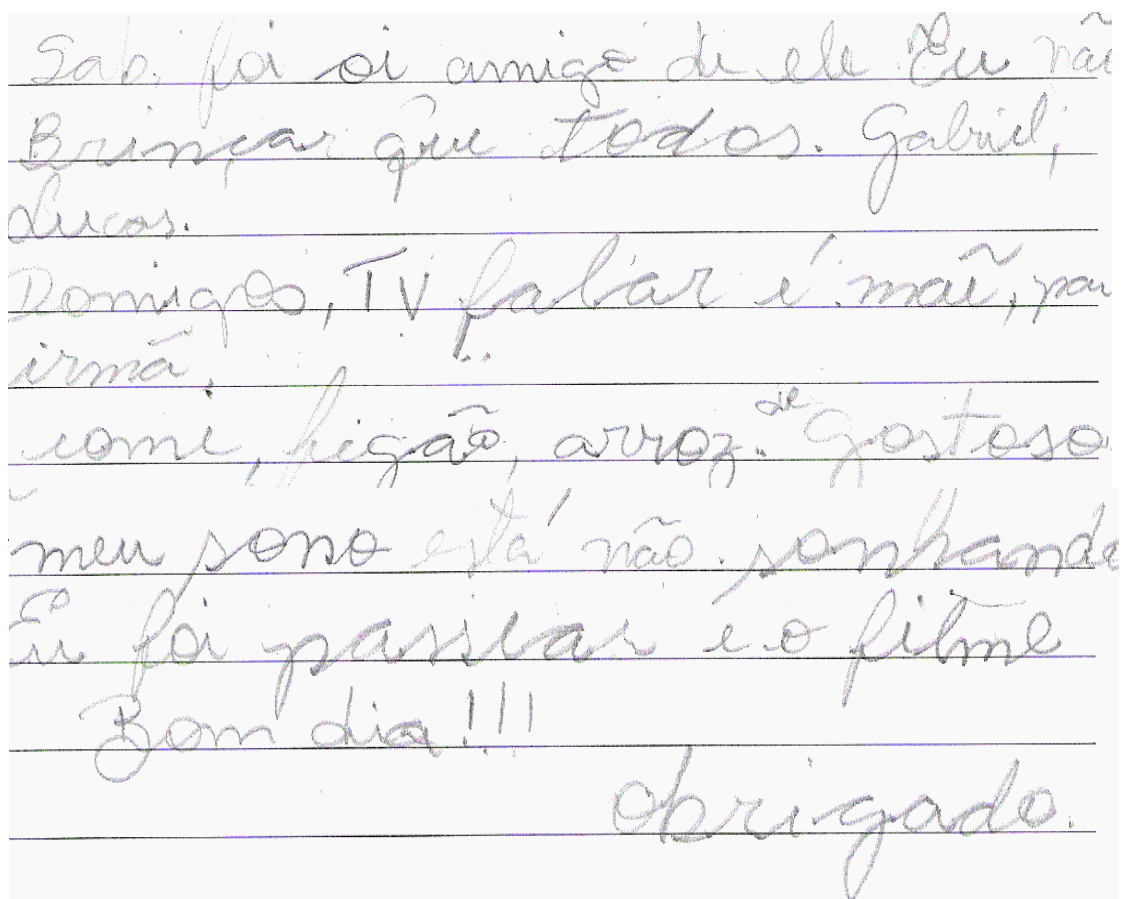 Sab. foi oi amigo di ele Eu não
Brincar que todos. Gabriel,
Lucas.
Domigos, TV falar é mãe, pai
irmã.
come, figão, arroz. de Gostoso
meu sono está não sonhando
Eu foi passear é o filme
Bom dia!!!
obrigado.